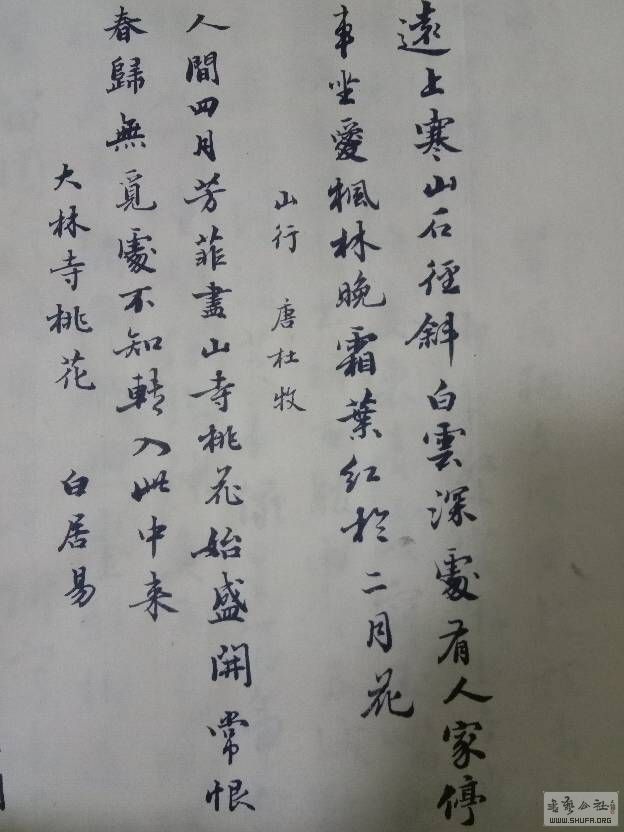 遠上寒山石徑斜白雲深處有人家停
車坐愛楓林晚霜葉紅於二月花
山行 唐杜牧
人間四月芳菲盡山寺桃花始盛開常恨
春歸無覓處不知轉入此中来
大林寺桃花 白居易
WWW.SHUFA.ORG